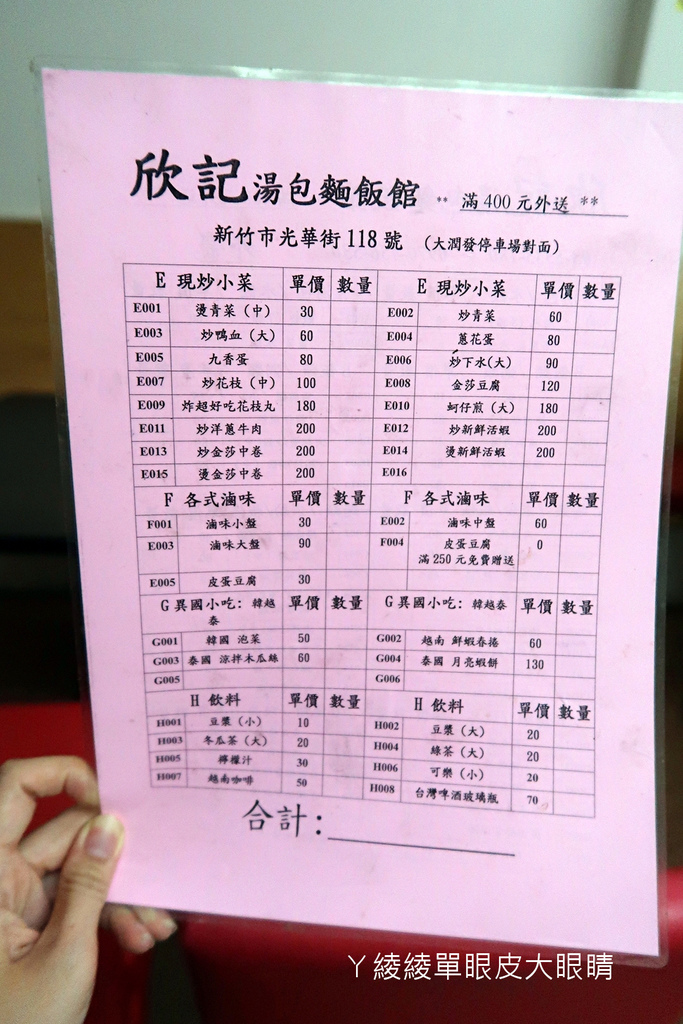 欣記湯包麵飯館 ** 滿400元外送 **
新竹市光華街118號 (大潤發停車場對面)
E 現炒小菜 單價 數量 E 現炒小菜 單價 數量
E001 燙青菜(中) 30 E002 炒青菜 60
E003 炒鴨血(大) 60 E004 蔥花蛋 80
E005 九香蛋 80 E006 炒下水(大) 90
E007 炒花枝(中) 100 E008 金莎豆腐 120
E009 炸超好吃花枝丸 180 E010 蚵仔煎(大) 180
E011 炒洋蔥牛肉 200 E012 炒新鮮活蝦 200
E013 炒金莎中卷 200 E014 燙新鮮活蝦 200
E015 燙金莎中卷 200 E016
F 各式滷味 單價 數量 F 各式滷味 單價 數量
F001 滷味小盤 30 E002 滷味中盤 60
E003 滷味大盤 90 F004 皮蛋豆腐 0
滿250元免費贈送
E005 皮蛋豆腐 30
G異國小吃: 韓越 單價 數量 G異國小吃: 韓越泰 單價 數量
泰
G001 韓國 泡菜 50 G002 越南 鮮蝦春捲 60
G003 泰國 涼拌木瓜絲 60 G004 泰國 月亮蝦餅 130
G005 G006
H 飲料 單價 數量 H 飲料 單價 數量
H001 豆漿(小) 10 H002 豆漿(大) 20
H003 冬瓜茶(大) 20 H004 綠茶(大) 20
H005 檸檬汁 30 H006 可樂(小) 20
H007 越南咖啡 50 H008 台灣啤酒玻璃瓶 70
合計:
ㄚ綾綾單眼皮大眼睛